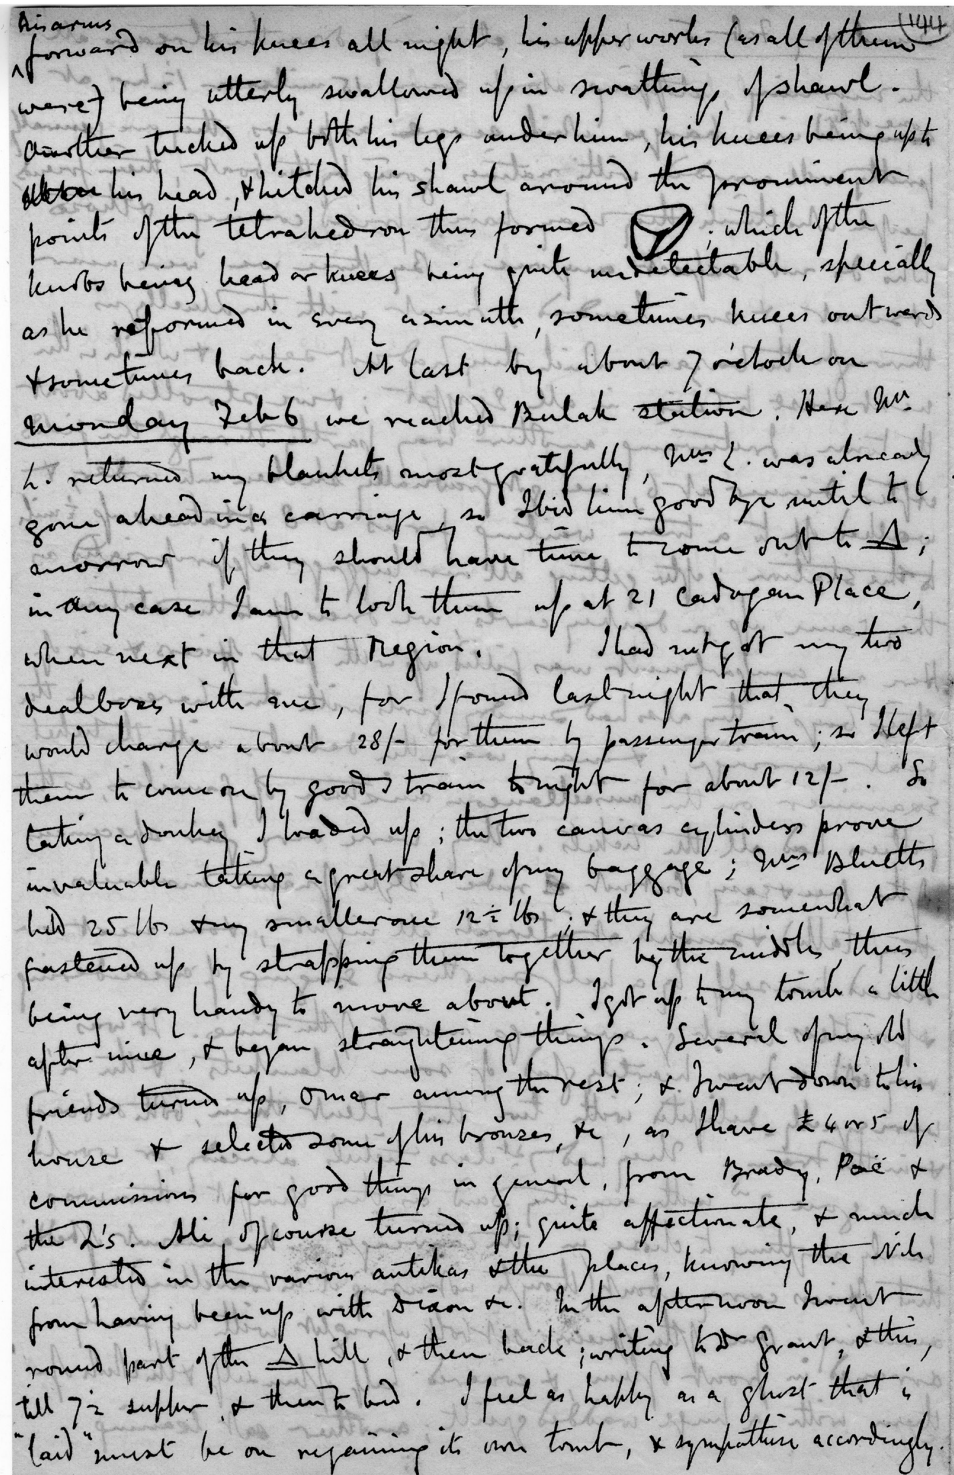 his arms 144
^forward on his knees all night, his upper works (as all of them
were) being utterly swallowed up in swathings of shawl.
Another tucked up both his legs under him, his knees being up to
his head, & hitched his shawl around the prominent
points of the tetrahedron thus formed ; which of the
knobs being head or knees being quite undetectable, specially
as he reformed in every azimuth, sometimes knees outwards
& sometimes back. At last by about 7 o'clock on
Monday Feb 6 we reached Bulak station. Here Mr
L. returned my blankets most gratefully, Mrs L. was already
gone ahead in a carriage, so I bid him good bye until to
morrow if they should have time to come out to △;
in any case I am to look them up at 21 Cadogan Place,
when next in that region. I had not got my two
deal boxes with me, for I found last night that they
would charge about 28/- for them by passenger train; so I left
them to come on by goods train tonight for about 12/-. So
taking a donkey I loaded up; the two canvas cylinders prove
invaluable taking a great share of my baggage; Mrs Bluetts
held 25 lbs & my smaller one 12½ lbs; & they are somewhat
fastened up by strapping them together by the middle, thus
being very handy to move about. I got up to my tomb a little
after nine, & began straightening things. Several of my old
friends turned up, Omar among the rest; & I went down to his
house & selected some of his bronzes, &c, as I have £4 or 5 of
commissions for good things in general, from Brady, Poë &
the L's. Ali of course turned up; quite affectionate, & much
interested in the various antikas & the places, knowing the Nile
from having been up with Dixon &c. In the afternoon I went
round part of the △ hill, & then back; writing to Dr Grant, & this,
till 7½ supper, & then to bed. I feel as happy as a ghost that is
"laid" must be on regaining its own tomb, & sympathise accordingly.